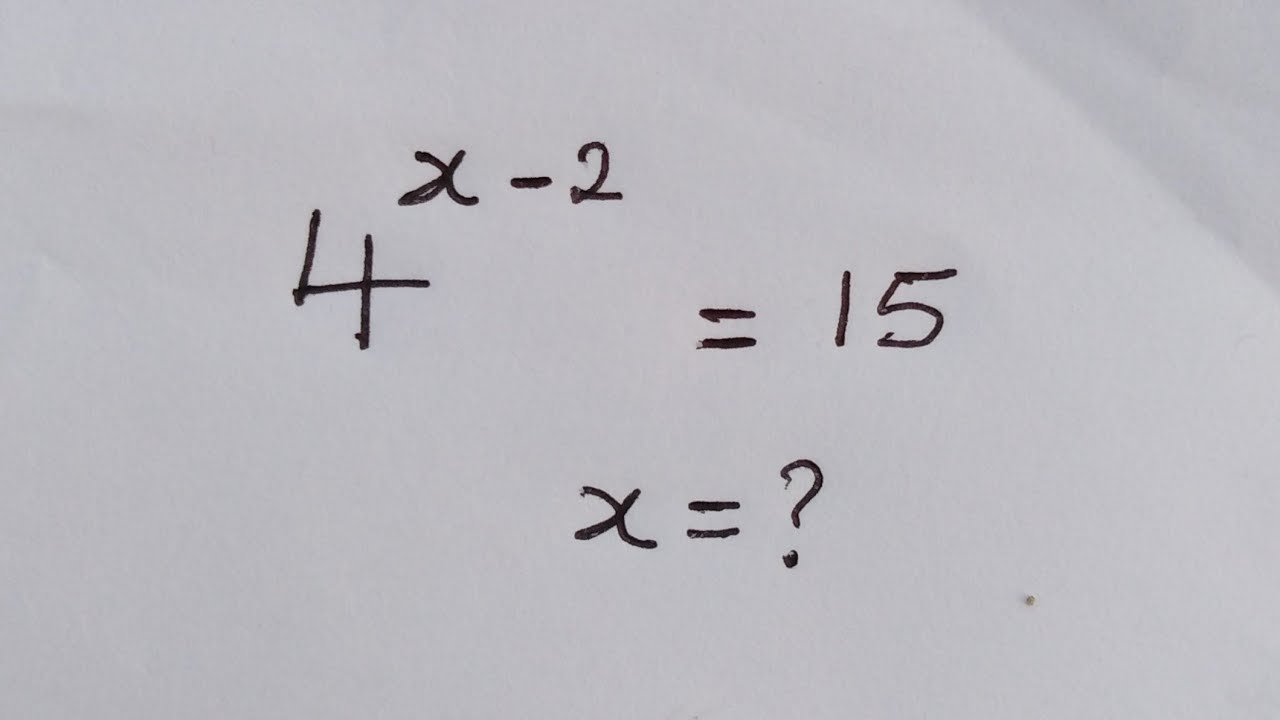 4^{x-2} = 15
x = ?